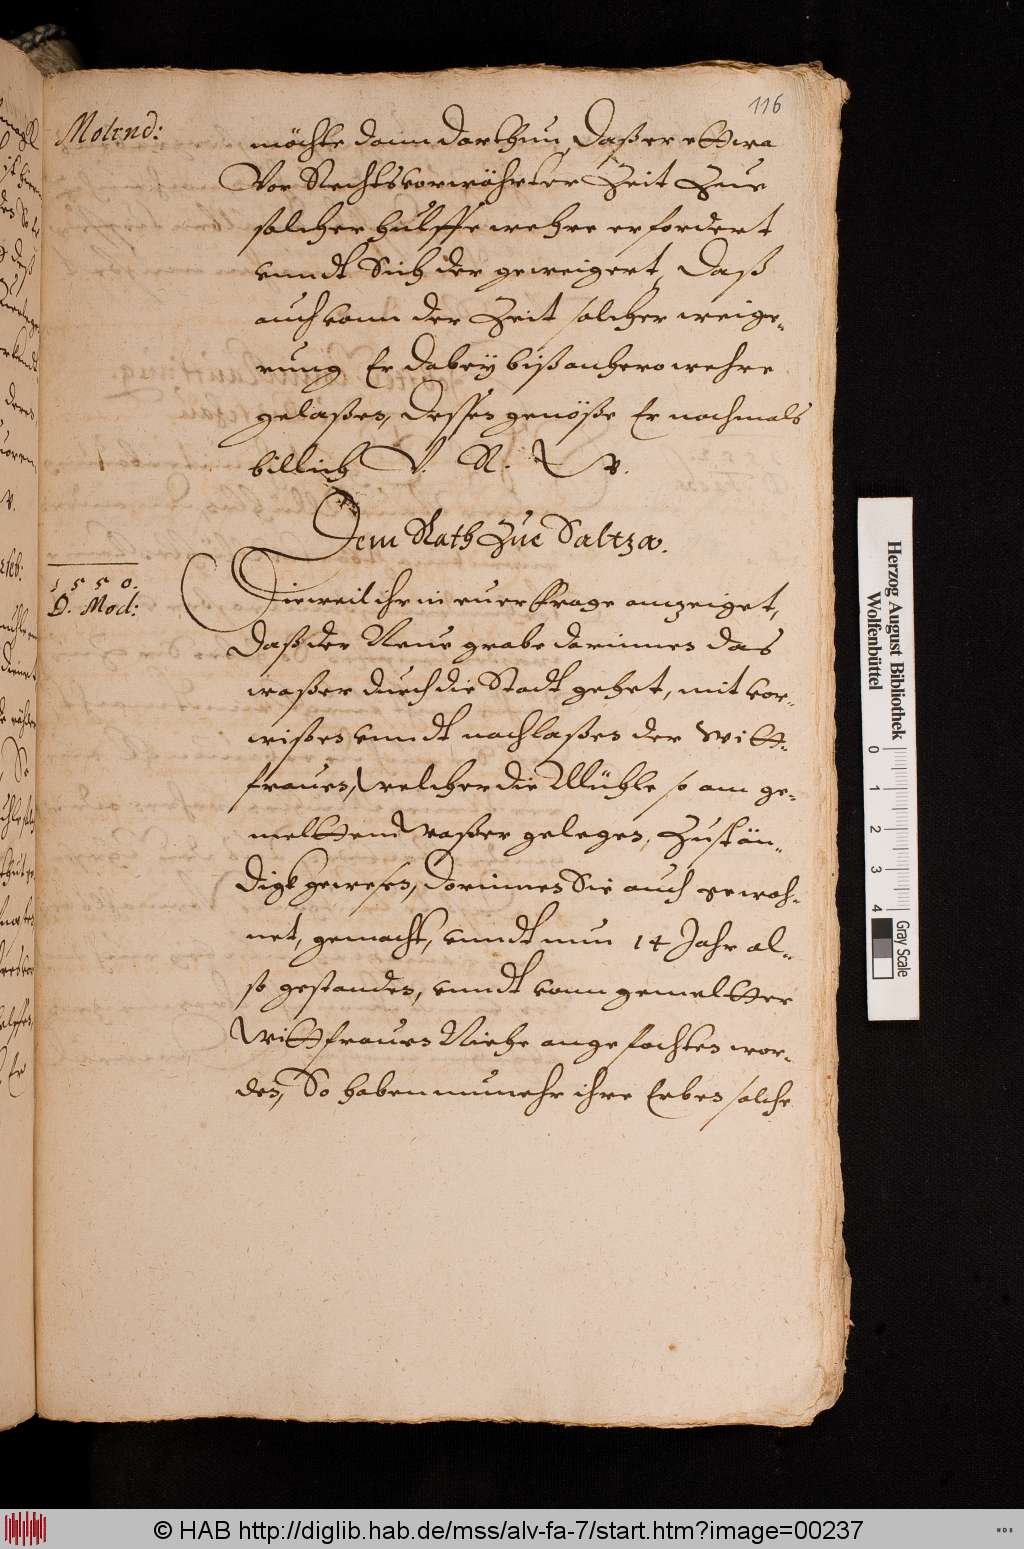 116
Molend:
möchte dann darthun, Daß er ettwa
Vor Rechtsvorwährter Zeit Zue
solcher hulffe wehre erfordert
vnndt Sich der geweigert, Daß
auch vonn der Zeit solcher weige-
rung Er dabey biß anhero wehre
gelaßen, Dessen genöße Er nochmals
billich V. R. W.
Dem Rath Zue Saltza.
1550.
D. Mod:
Dieweil ihr in euer Frage anzeiget,
Daß der Neue grabe darinnen das
waßer durch die Stadt gehet, mit vor-
wißen vnndt nachlaßen der Witt-
frauen, welcher die Mühle so am ge-
meltem Waßer gelegen, Zustän-
digk gewesen, darinnen Sie auch gewoh-
net, gemacht, vnndt nun 14 Jahr al-
so gestanden, vnndt vonn gemeltter
Wittfrauen Niehe angefochten wor-
den, So haben nunmehr ihre Erben solche
Herzog August Bibliothek
Wolfenbüttel
0 1 2 3 4
Gray Scale
© HAB http://diglib.hab.de/mss/alv-fa-7/start.htm?image=00237